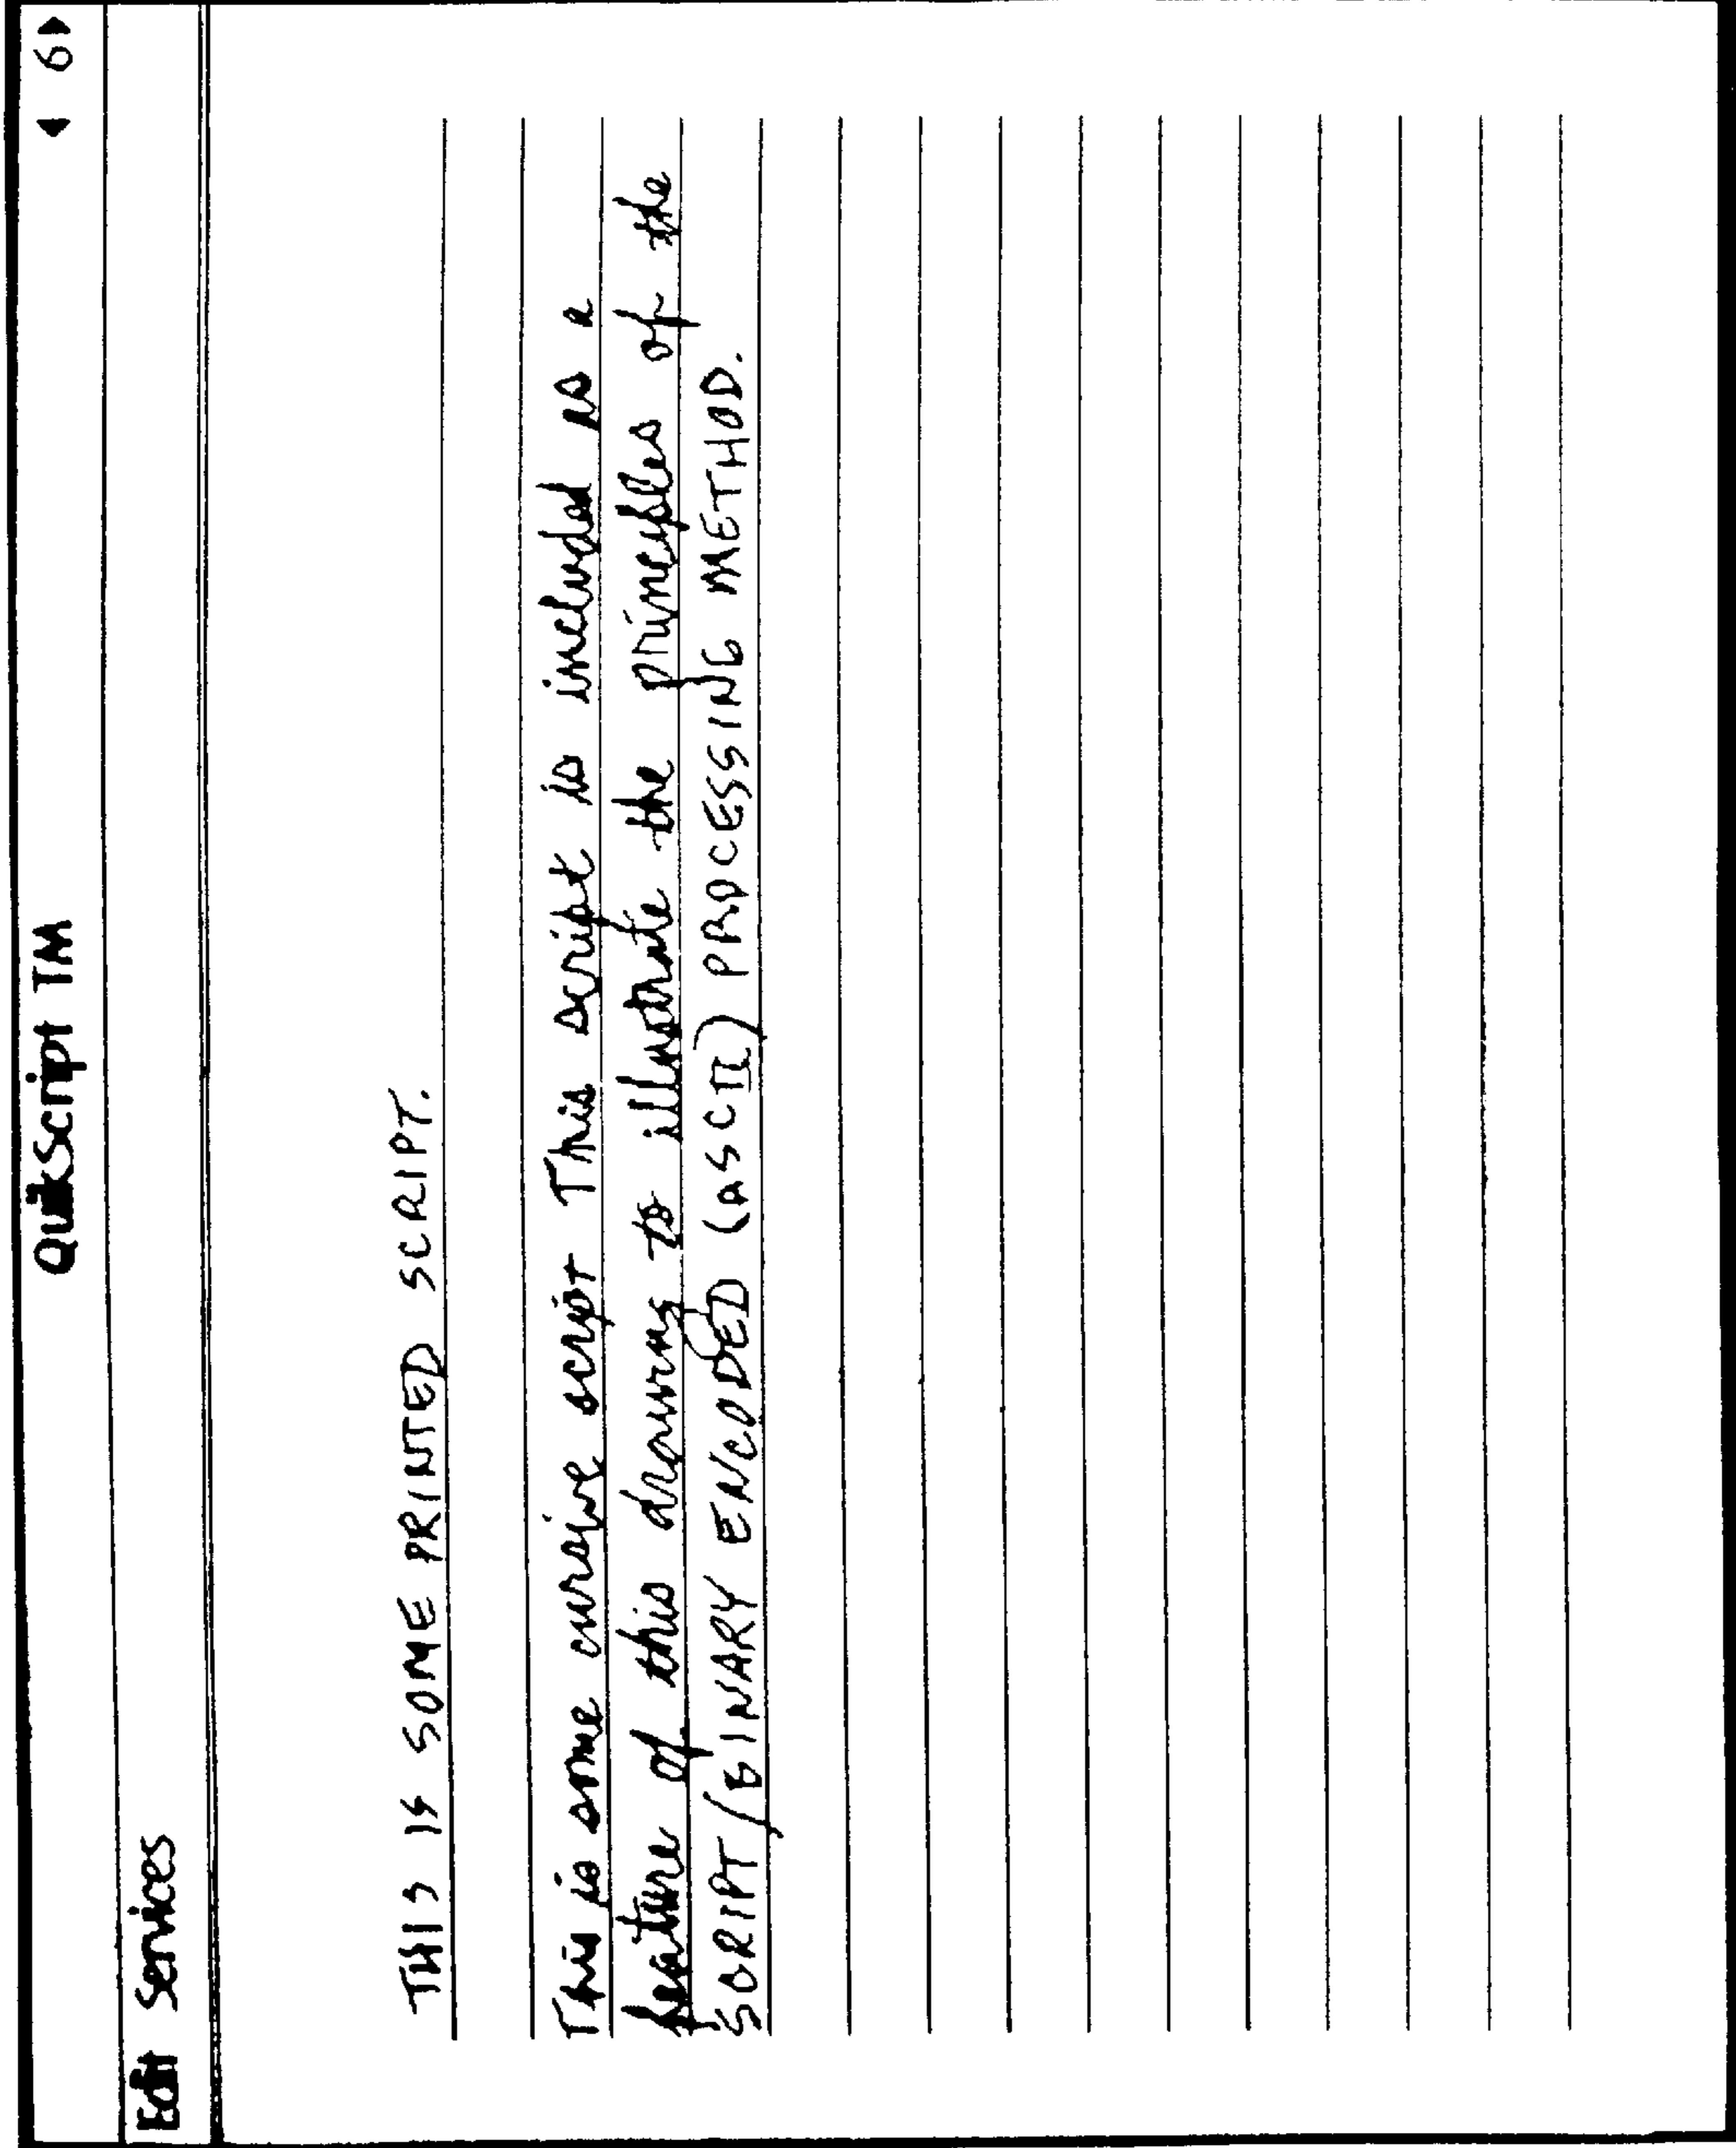 QuikScript TM ◀ 6 ▶
Edit Services
THIS IS SOME PRINTED SCRIPT.
This is some cursive script This script is included as a
feature of this drawing to illustrate the principles of the
SCRIPT/BINARY ENCODED (ASCII) PROCESSING METHOD.